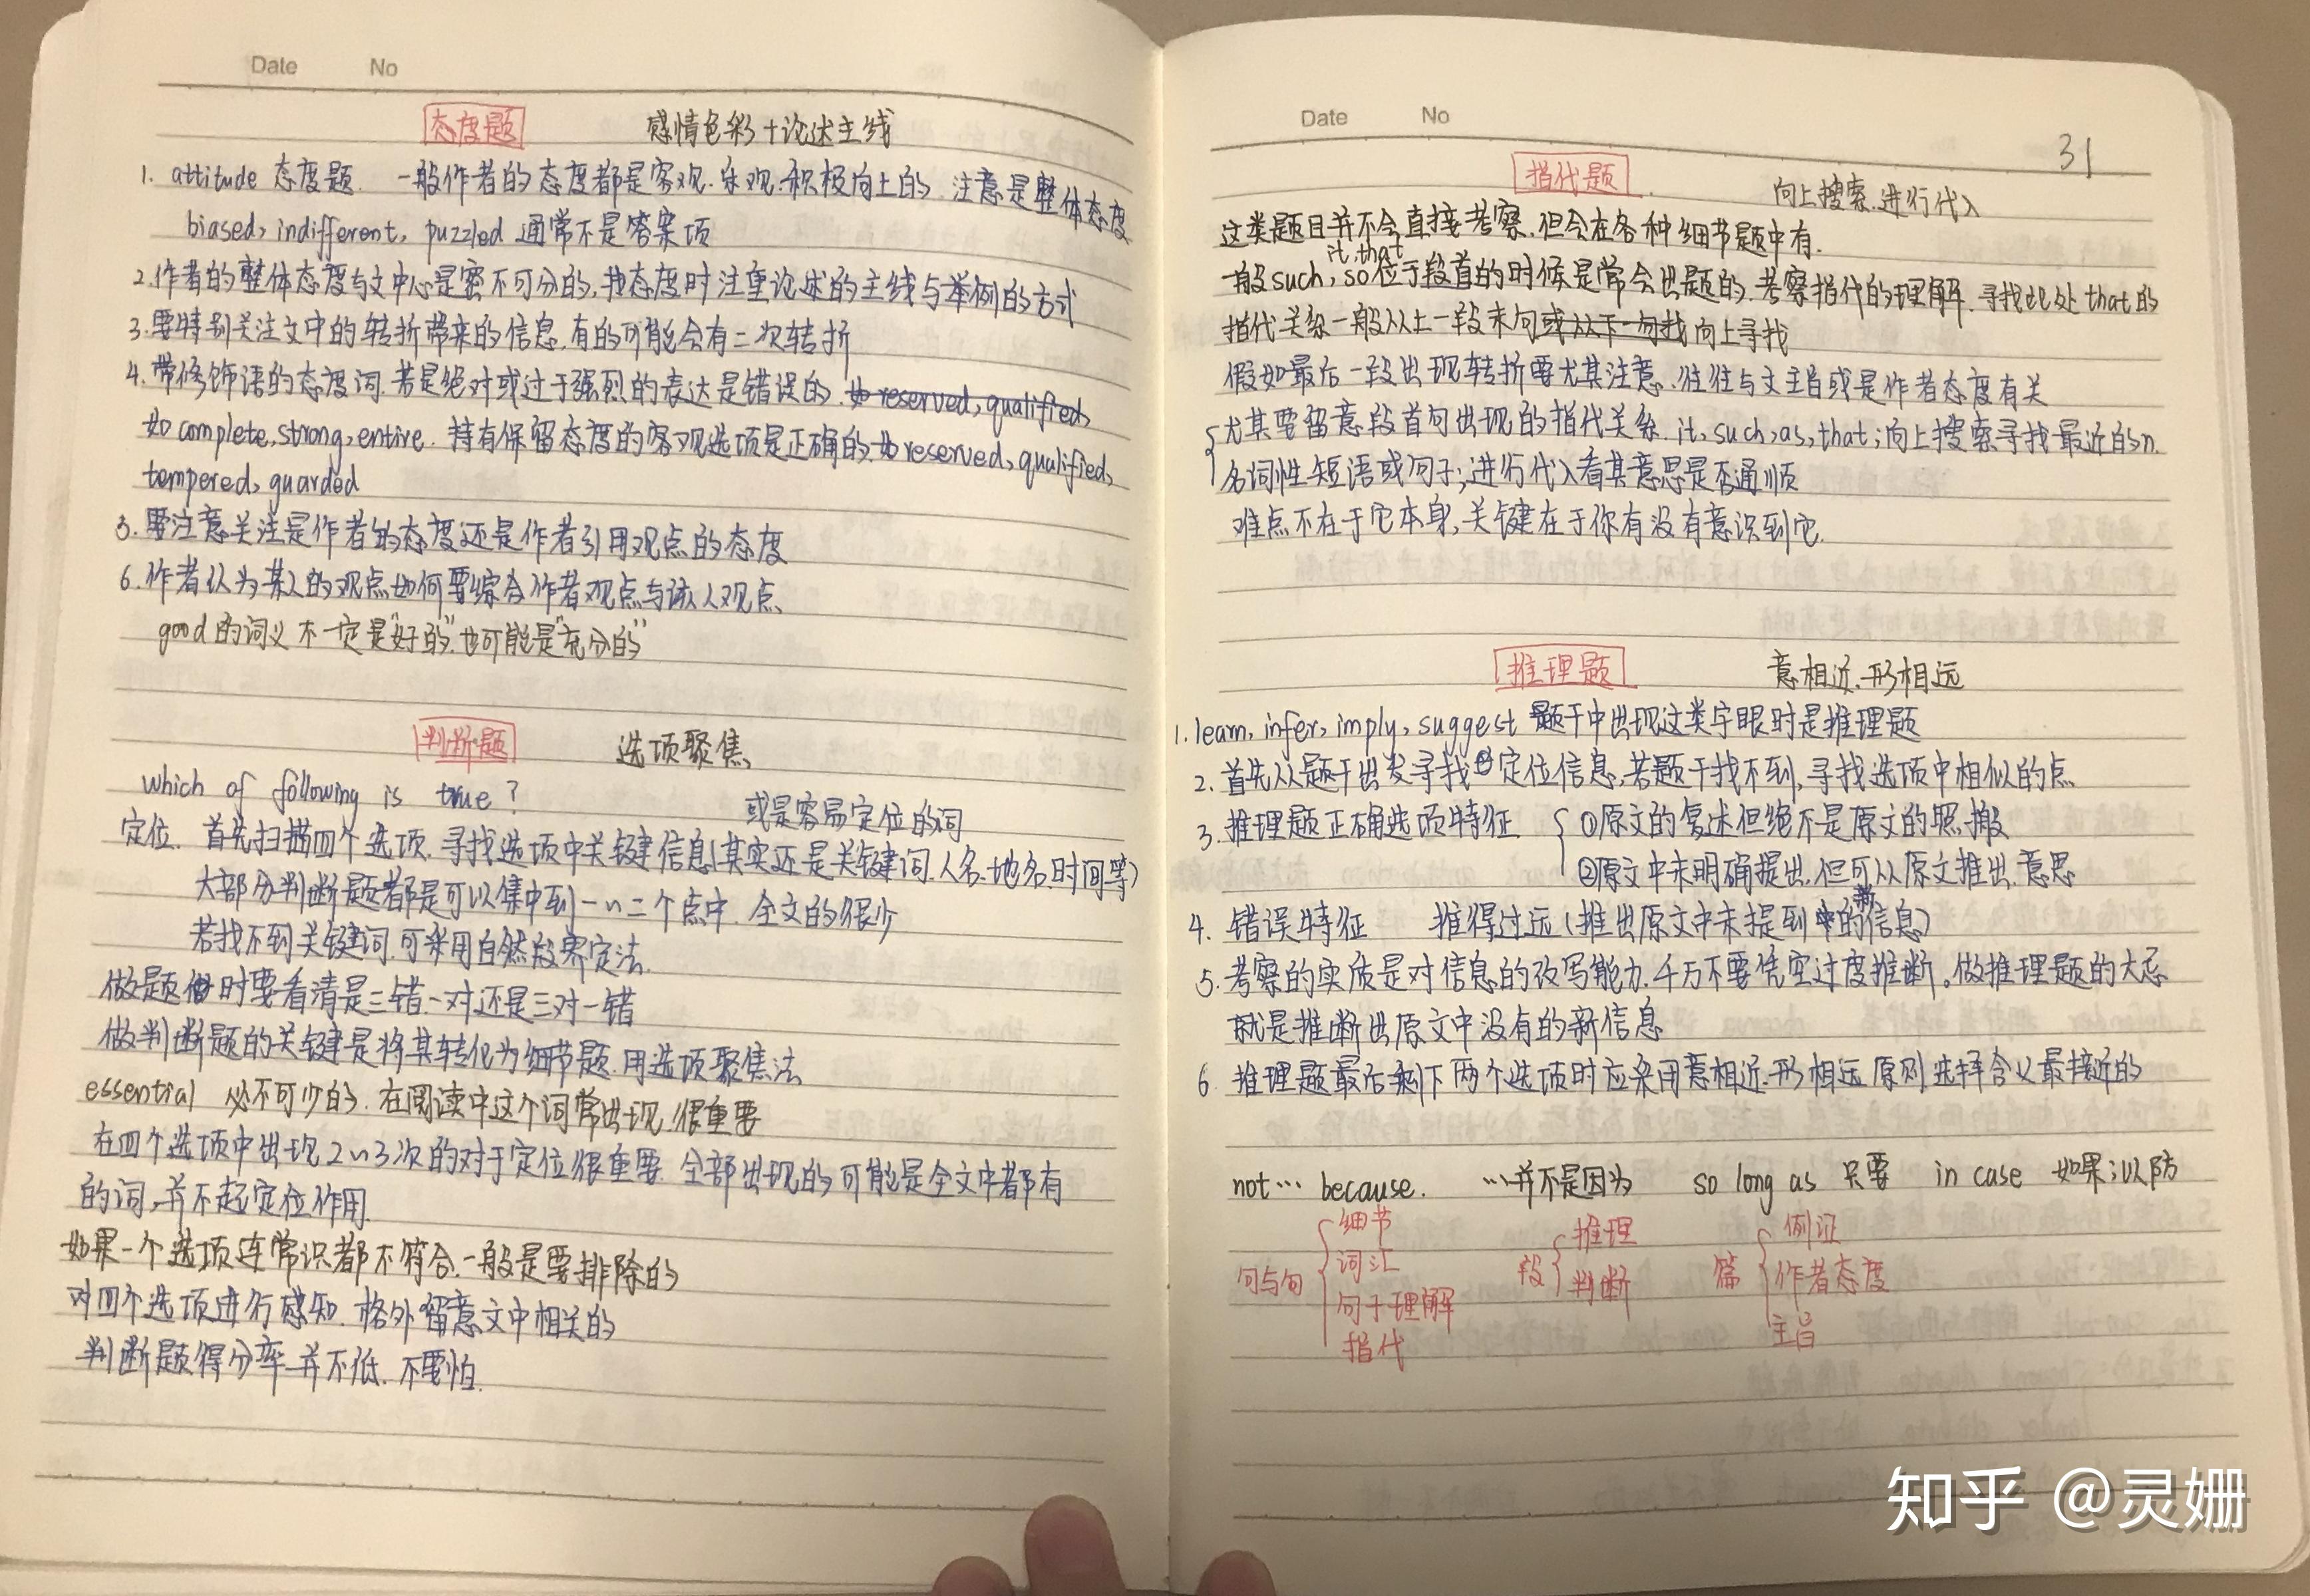 Date No
态度题 感情色彩+论述主线
1. attitude 态度题. 一般作者的态度都是客观.乐观.积极向上的. 注意是整体态度
biased, indifferent, puzzled 通常不是答案项
2.作者的整体态度与文中心是密不可分的,找态度时注重论述的主线与举例的方式
3.要特别关注文中的转折带来的信息,有的可能会有二次转折
4.带修饰语的态度词.若是绝对或过于强烈的表达是错误的.如reserved, qualified,
如complete, strong, entire. 持有保留态度的客观选项是正确的.如reserved, qualified,
tempered, guarded
5.要注意关注是作者的态度还是作者引用观点的态度
6.作者认为某人的观点如何要综合作者观点与该人观点
good的词义不一定是"好的".也可能是"充分的"
判断题 选项聚焦
which of following is true?
或是容易定位的词
定位. 首先扫描四个选项.寻找选项中关键信息(其实还是关键词.人名.地名.时间等)
大部分判断题都是可以集中到一~二个点中. 全文的很少
若找不到关键词.可采用自然段界定法.
做题时要看清是三错一对还是三对一错
做判断题的关键是将其转化为细节题.用选项聚焦法
essential 必不可少的. 在阅读中这个词常出现.很重要
在四个选项中出现2~3次的对于定位很重要. 全部出现的可能是全文中都有
的词,并不起定位作用.
如果一个选项连常识都不符合.一般是要排除的
对四个选项进行感知.格外留意文中相关的
判断题得分率并不低.不要怕.
Date No
31
指代题 向上搜索.进行代入
这类题目并不会直接考察.但会在各种细节题中有.
it, that
一般such, so位于段首的时候是常会出题的.考察指代的理解.寻找此处that的
指代关系一般从上一段末句或从下一句找向上寻找
假如最后一段出现转折要尤其注意.往往与文主旨或是作者态度有关
尤其要留意段首句出现的指代关系.it, such, as, that;向上搜索寻找最近的n.
名词性短语或句子;进行代入看其意思是否通顺
难点不在于它本身,关键在于你有没有意识到它.
推理题 意相近.形相远
1. learn, infer, imply, suggest 题干中出现这类字眼时是推理题
2. 首先从题干出发寻找定位信息,若题干找不到,寻找选项中相似的点
3. 推理题正确选项特征 ①原文的复述但绝不是原文的照搬
②原文中未明确提出.但可从原文推出意思
4. 错误特征 推得过远(推出原文中未提到的新信息)
5. 考察的实质是对信息的改写能力.千万不要凭空过度推断。做推理题的大忌
就是推断出原文中没有的新信息
6. 推理题最后剩下两个选项时应采用意相近.形相远原则选择含义最接近的
not… because. …并不是因为 so long as 只要 in case 如果;以防
句与句 细节 词汇 句子理解 指代
段 推理 判断
篇 例证 作者态度 主旨
知乎 @灵姗